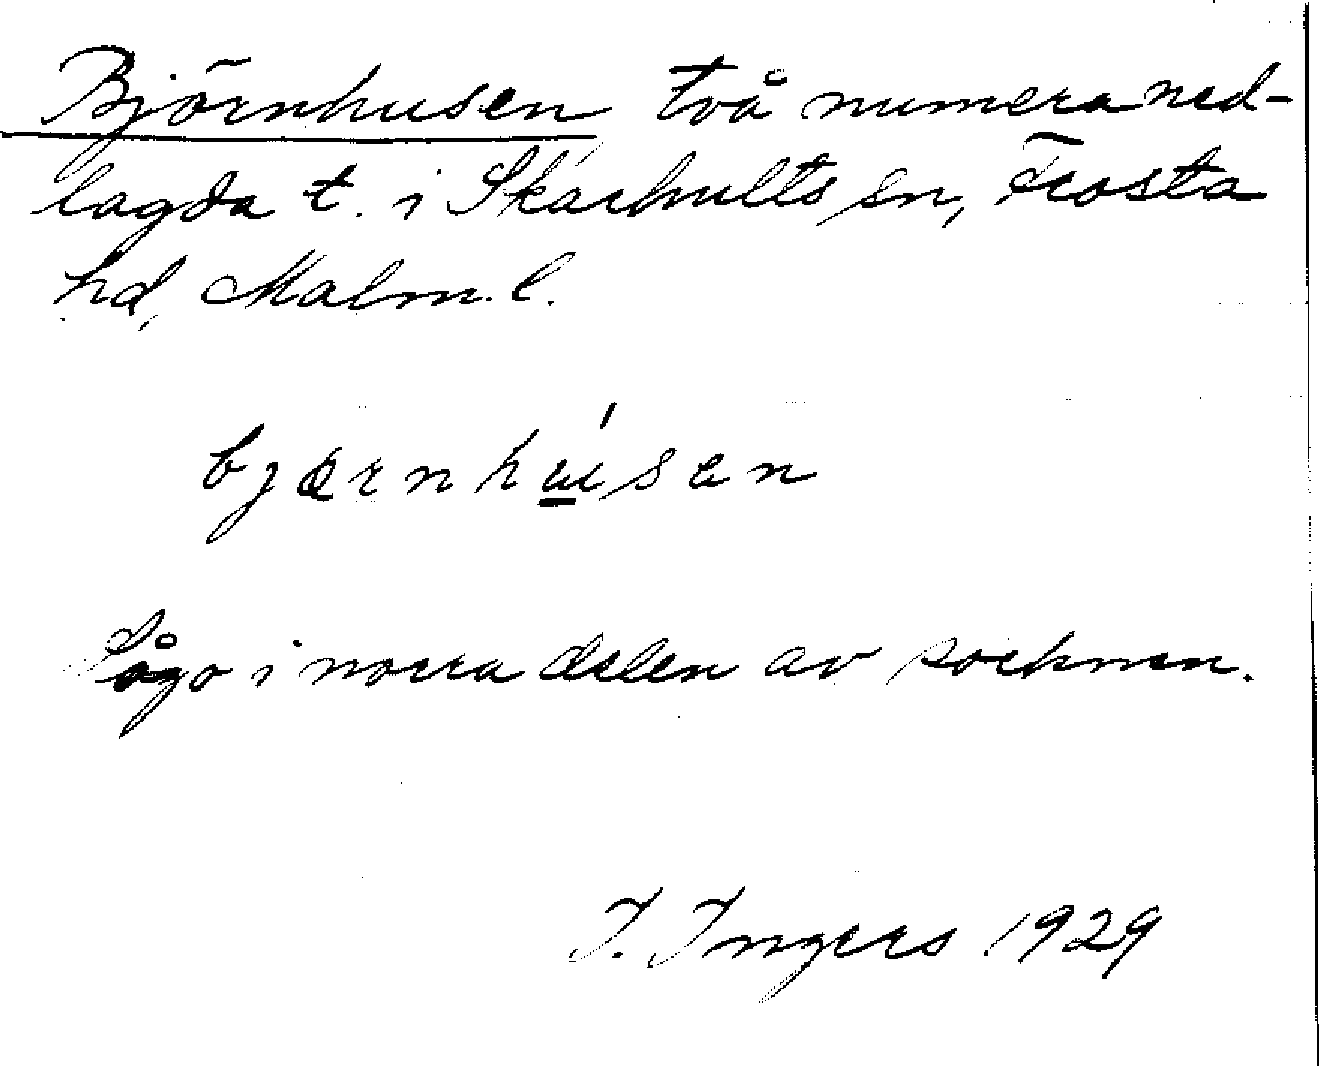 Björnhusen två numera ned-
lagda t. i Skarhults sn, Frosta
hd, Malm. l.
Lågo i norra delen av socknen.
I. Ingers 1929